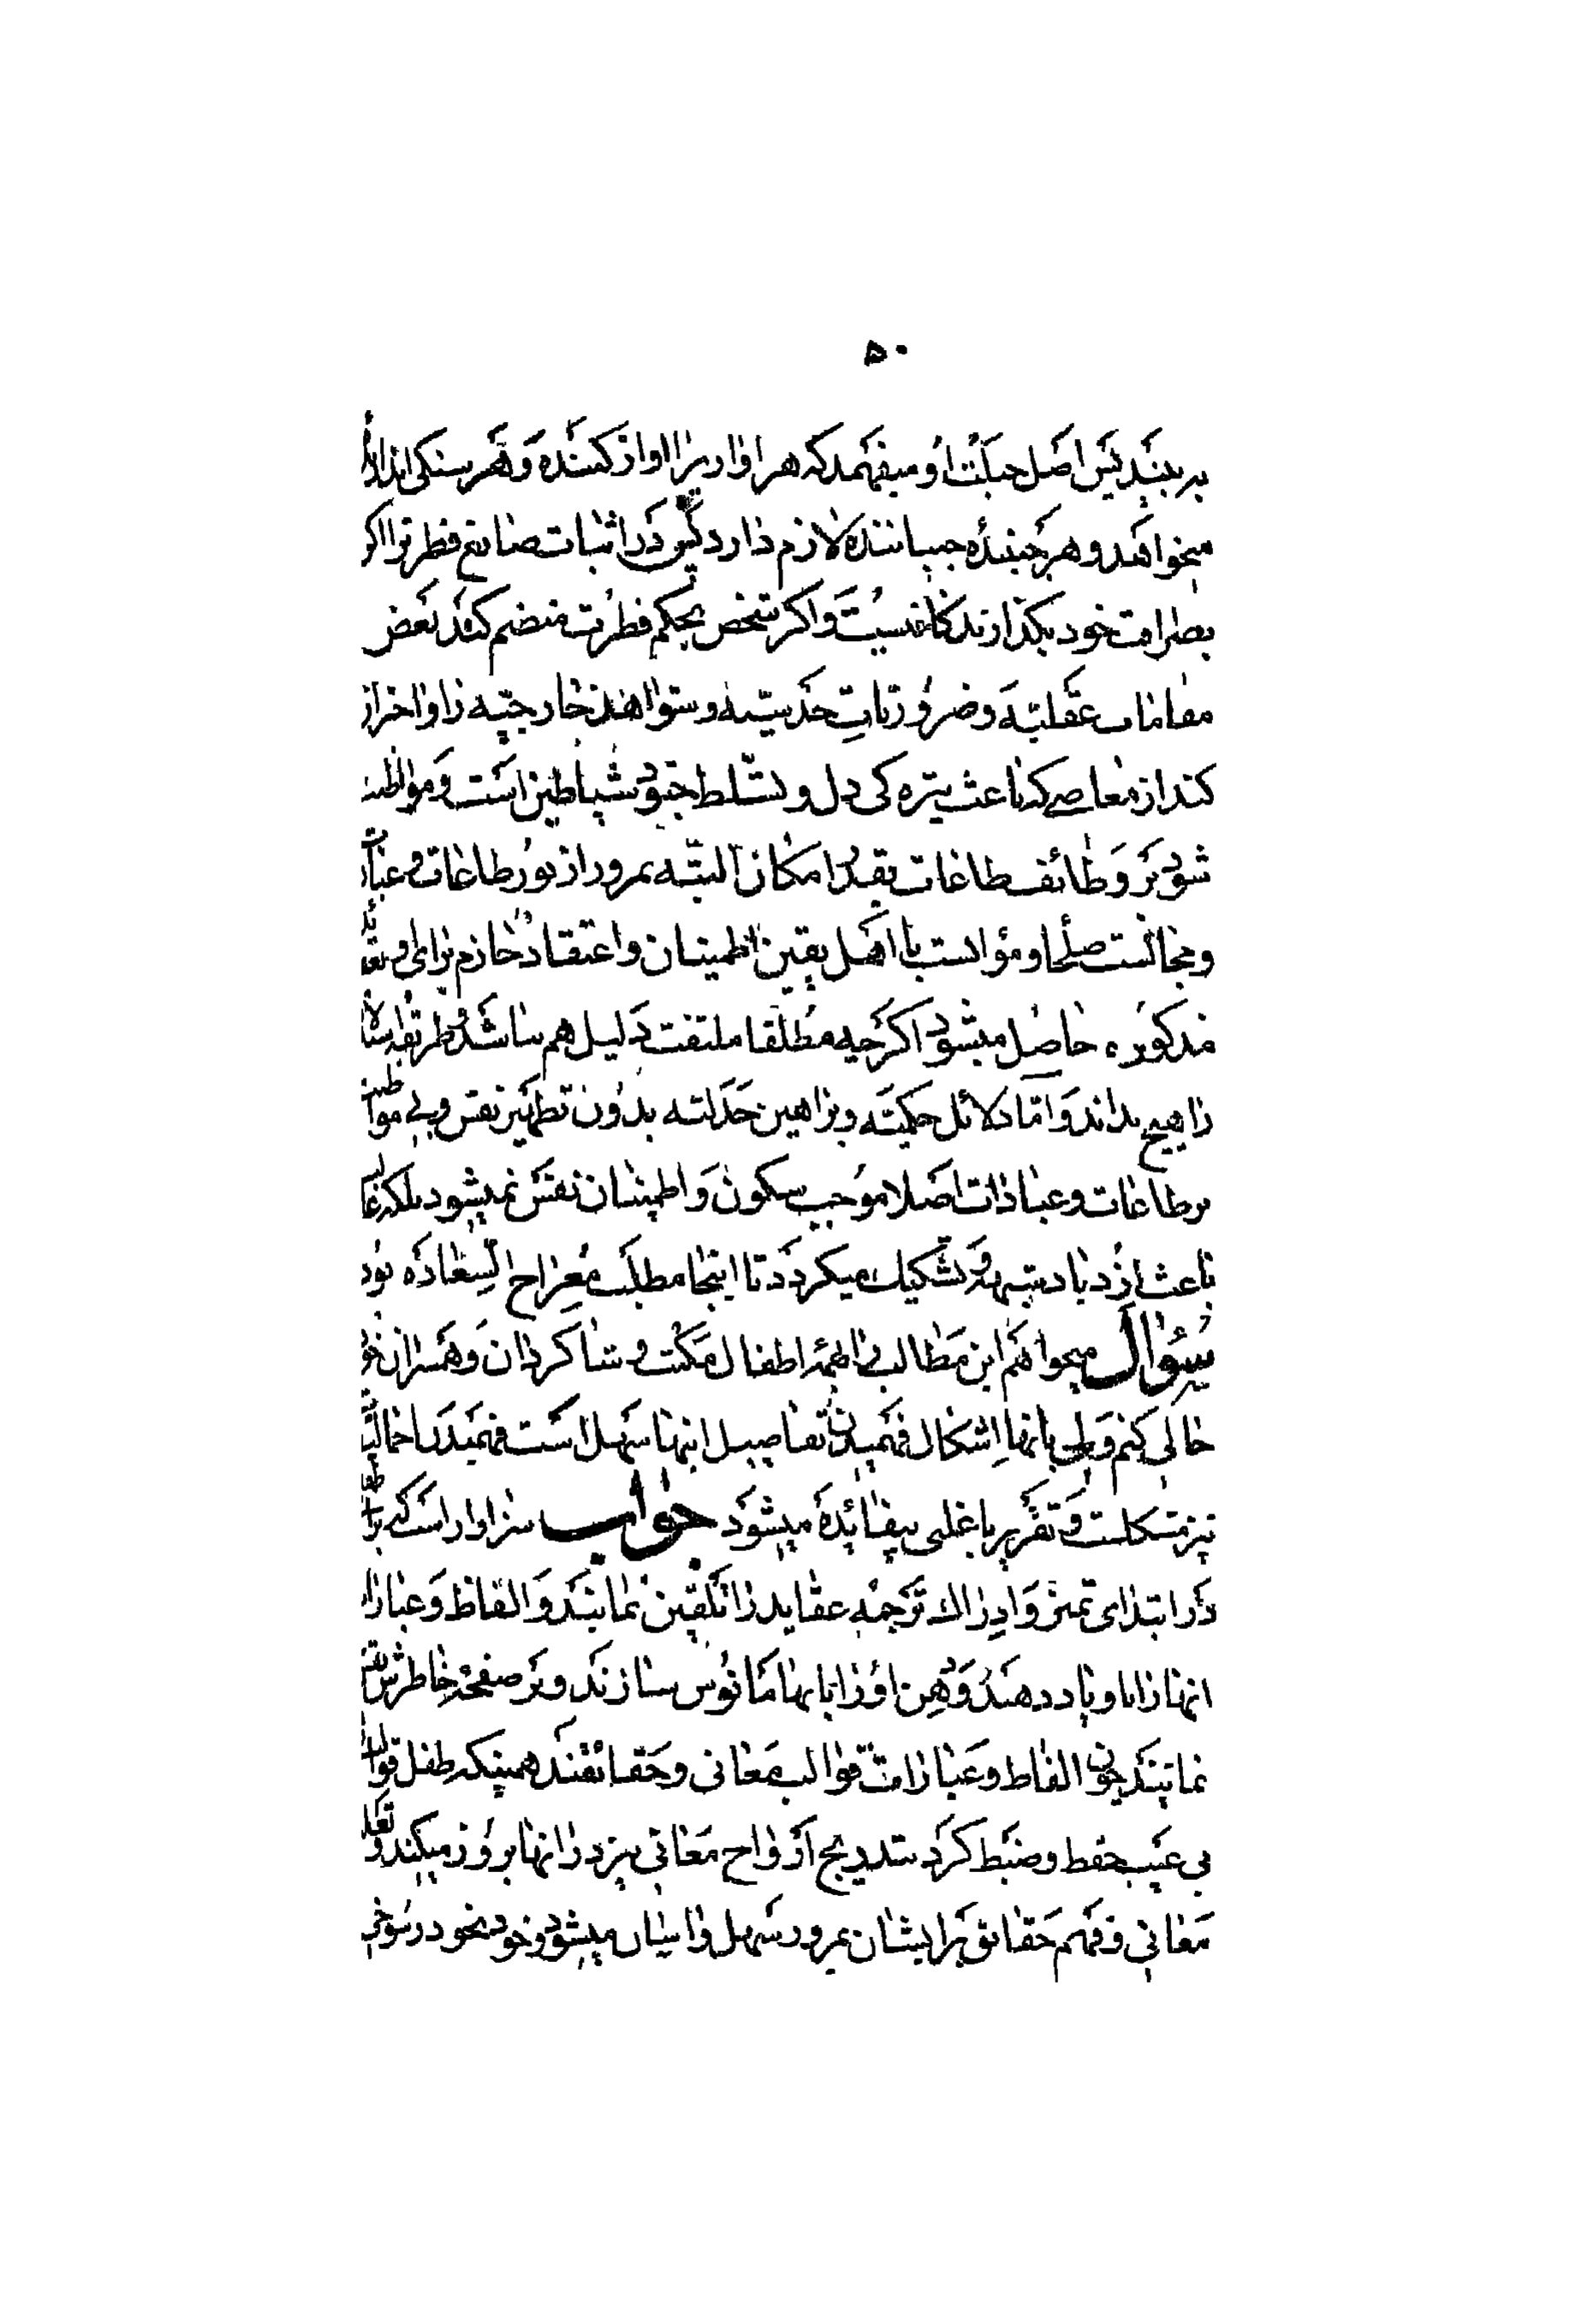 ۵۰
به بیند پس اصل جبلت او میفهمد که هر اوازیرا اواز کننده و هر سنکی اندازنده
میخواهد و هر جنبنده جنباننده لازم دارد پس در اثبات صانع فطرترا اکر
بصرافت خود بکذارند کافیست و اکر شخص بحکم فطرت منضم کند بعض
مقامات عقلیه و ضروریات حدسیه و شواهد خارجیه را و احتراز
کند از معاصی که باعث تیره کی دل و تسلط جنود شیاطین است و مواظب
شود بر وظائف طاعات بقدر امکان البته بمرور از نور طاعات و عبادات
و مجالست صلحا و مؤانست با اهل یقین اطمینان و اعتقاد جازم برای او بعقاید
مذکوره حاصل میشود اکر چه مطلقا ملتفت دلیل هم نباشد و طریقه استدلال
را هیچ نداند و اما دلائل حکمیه و براهین جدلیه بدون تطهیر نفس و بی مواظبت
بر طاعات و عبادات اصلا موجب سکون و اطمینان نفس نمیشود بلکه غالبا
باعث ازدیاد شبهه و تشکیک میکردد تا اینجا مطلب معراج السعاده بود
سؤال میخواهم این مطالب را بهمه اطفال مکتب و شاکردان و همسران خود
حالی کنم ولی بانها اشکال فهمیدن تفاصیل اینها سهل است فهمیدن اجمالیش
نیز مشکلست و تقریر باغلبی بیفائده میشود جواب سزاوار است که باطفال
در ابتدای تمیز و ادراك ترجمه عقاید را تلقین نمایند و الفاظ و عبارات
انها را باو یاد دهند و ذهن او را بانها مانوس سازند و بر صفحه خاطرش نقش
نمایند چون الفاظ و عبارات قوالب معانی و حقائقند همینکه طفل قوالب را
بی عیب حفظ و ضبط کرد بتدریج ارواح معانی نیز در انها بروز میکند و تعقل
معانی و فهم حقائق برایشان بمرور سهل و اسان میشود و خود بخود رسوخ